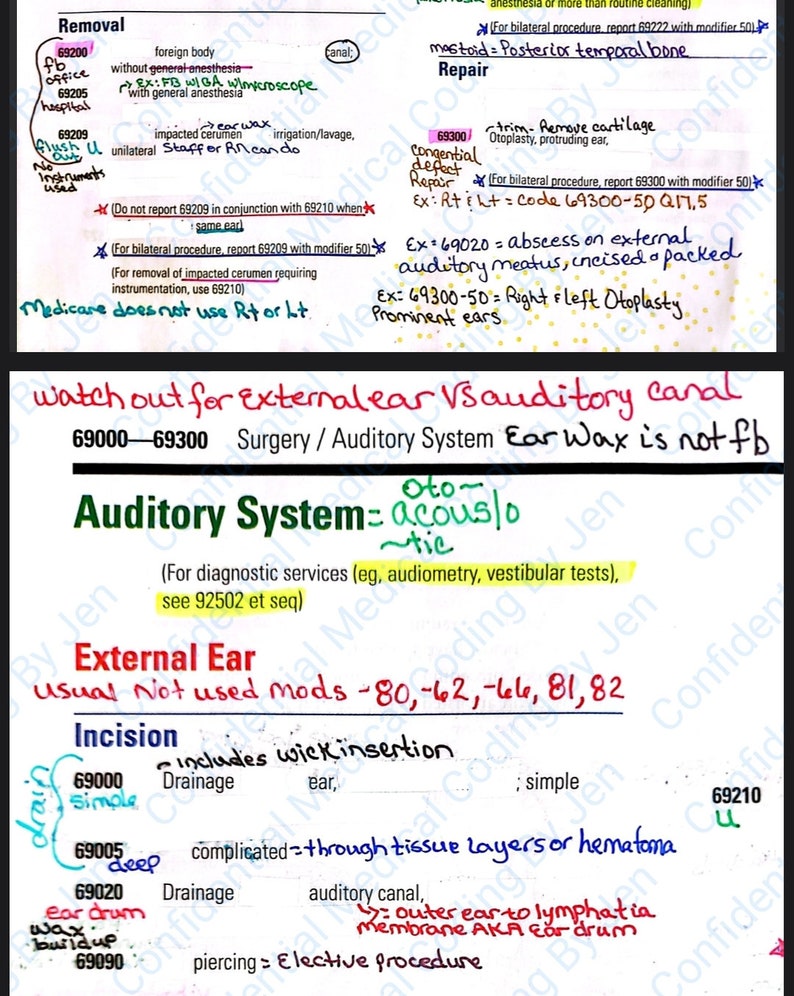 Removal
69200 foreign body canal;
fb office
without general anesthesia
→ Ex: FB w/GA w/microscope
69205 with general anesthesia
hospital
→ ear wax
69209 impacted cerumen irrigation/lavage,
flush out U unilateral Staff or RN can do
No instruments used
(Do not report 69209 in conjunction with 69210 when
same ear)
(For bilateral procedure, report 69209 with modifier 50)
(For removal of impacted cerumen requiring
instrumentation, use 69210)
Medicare does not use Rt or Lt
anesthesia or more than routine cleaning)
(For bilateral procedure, report 69222 with modifier 50)
mastoid = Posterior temporal bone
Repair
trim- Remove cartilage
69300 Otoplasty, protruding ear,
Congential
defect
Repair
(For bilateral procedure, report 69300 with modifier 50)
Ex: Rt & Lt = Code 69300-50 Q17.5
Ex = 69020 = abscess on external
auditory meatus, incised & packed
Ex = 69300-50 = Right & left Otoplasty
Prominent ears
watch out for External ear VS auditory canal
69000—69300 Surgery / Auditory System Ear Wax is not fb
oto~
Auditory System = acous/o
~tic
(For diagnostic services (eg, audiometry, vestibular tests),
see 92502 et seq)
External Ear
usual Not used mods -80, -62, -66, 81, 82
Incision
- includes wick insertion
69000 Drainage ear, ; simple
drain
simple
69210
U
69005 complicated = through tissue layers or hematoma
deep
69020 Drainage auditory canal,
ear drum
= outer ear to lymphatia
membrane AKA Ear drum
wax
buildup
69090 piercing = Elective procedure
Confidential Medical Coding By Jen